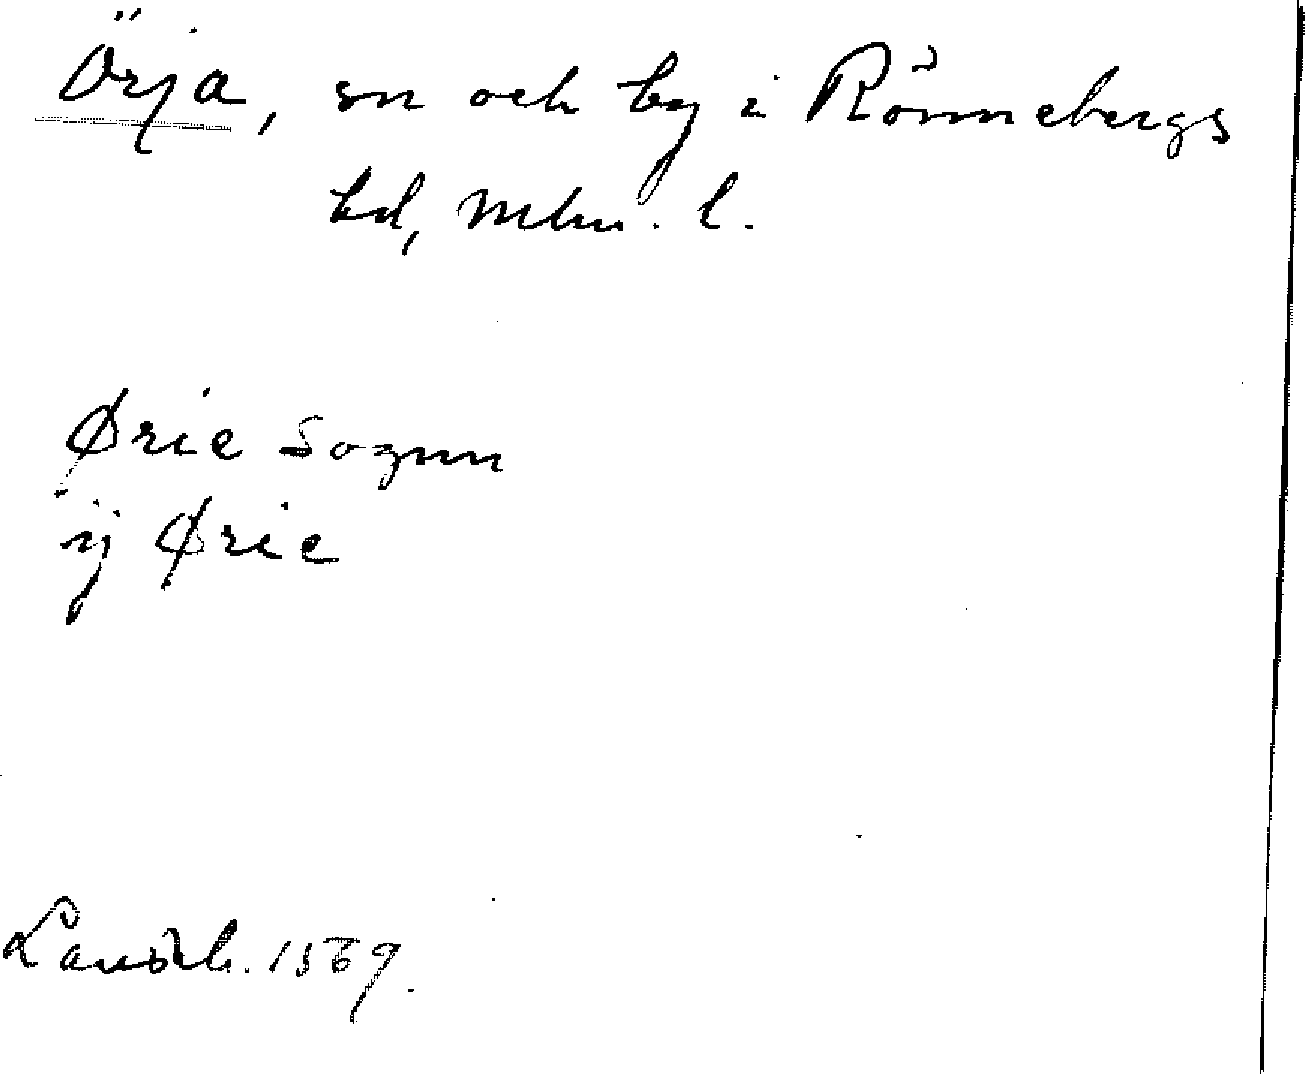 Örja, sn och by i Rönnebergs
hd, Mlm. l.
Ørie Sognn
ij Ørie
Landsb. 1569.